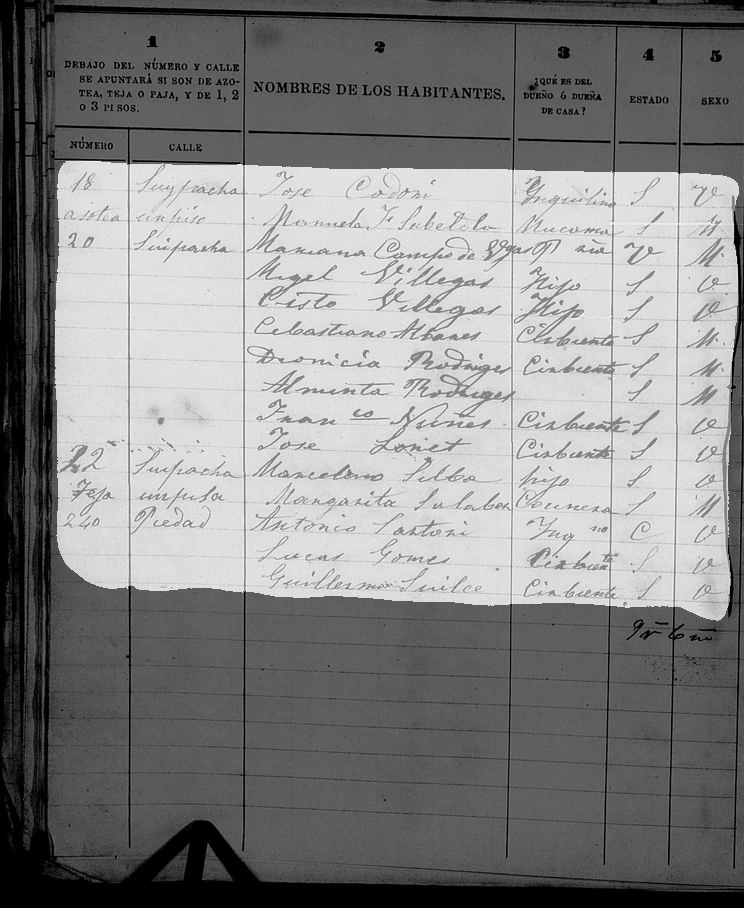 1
DEBAJO DEL NÚMERO Y CALLE
SE APUNTARÁ SI SON DE AZO-
TEA, TEJA O PAJA, Y DE 1, 2
O 3 PISOS.
NÚMERO CALLE
2
NOMBRES DE LOS HABITANTES.
3
¿QUÉ ES DEL
DUEÑO Ó DUEÑA
DE CASA?
4
ESTADO
5
SEXO
18 Suypacha Jose Codoni Ynquilino S V
asotea un piso Manuela F Mucama S M
20 Suipacha Mariana Campo de V M
Migel Villegas Hijo S V
Cisto Villegas Hijo S V
Cebastiano Albares Cirbiente S M
Dionicia Rodriges Cirbiente S M
Alminta Rodriges S M
Franco Nuñes Cirbiente S V
Jose Cirbiente S V
22 Suipacha Marcelino Silba hijo S V
Teja Margarita S M
240 Piedad Antonio Santoni Inqno C V
Lucas Gomes Cirbiente S V
Guillermo Cirbiente S V